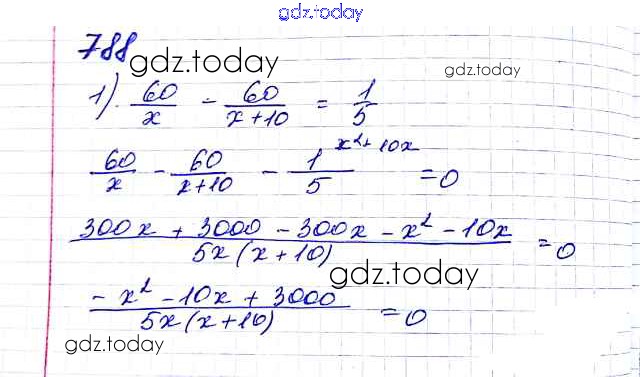 gdz.today
788
gdz.today
gdz.today
1). 60/x - 60/(x+10) = 1/5
60/x - 60/(x+10) - 1/5 x²+10x = 0
(300x + 3000 - 300x - x² - 10x)/(5x(x+10)) = 0
gdz.today
(-x² - 10x + 3000)/(5x(x+10)) = 0
gdz.today